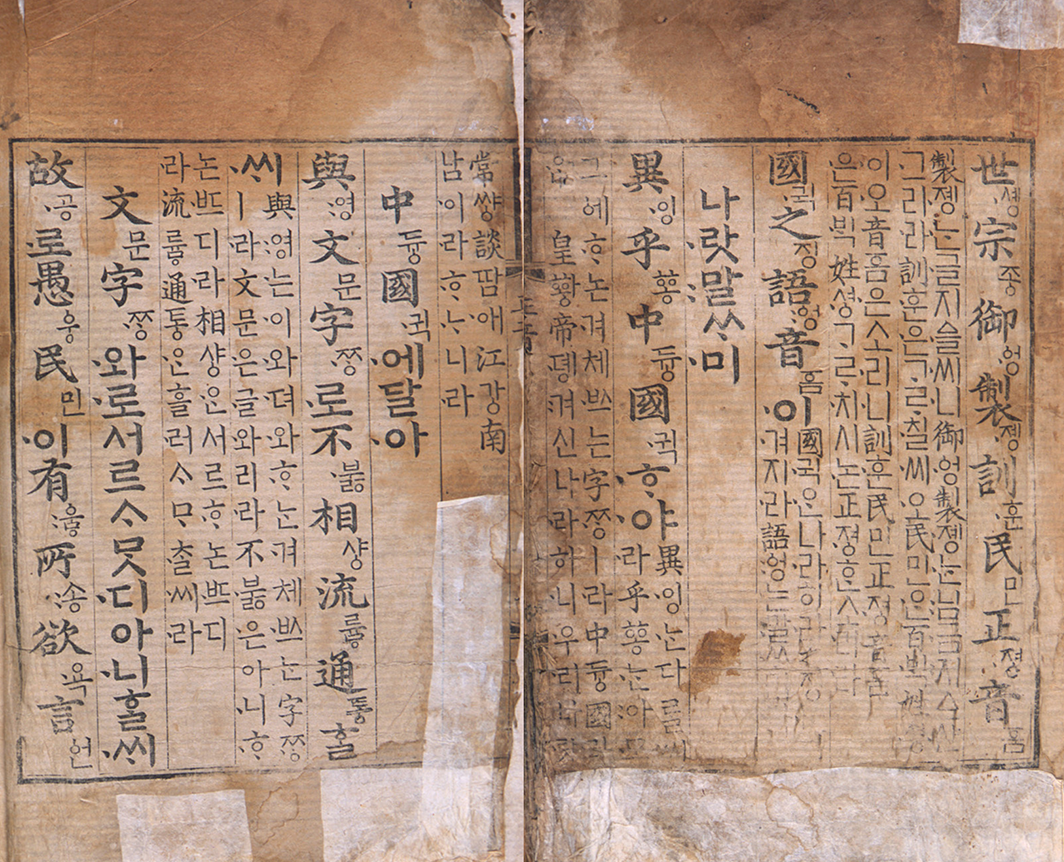 世솅宗종御엉製졩訓훈民민正졍音ᅙᅳᆷ
製졩ᄂᆞᆫ글지ᅀᅳᆯ씨니御엉製졩ᄂᆞᆫ님금지ᅀᅳ샨
그리라訓훈은ᄀᆞᄅᆞ칠씨오民민ᄋᆞᆫ百ᄇᆡᆨ姓셩
이오音ᅙᅳᆷ은소리니訓훈民민正졍音ᅙᅳᆷ
은百ᄇᆡᆨ姓셩ᄀᆞᄅᆞ치시논正졍ᄒᆞᆫ소리라
國귁之징語ᅌᅥᆼ音ᅙᅳᆷ이國귁ᄋᆞᆫ나라히라
겨지라語ᅌᅥᆼ는말ᄊᆞ
나랏말ᄊᆞ미
異잉乎ᅘᅩᆼ中듀ᇰ國귁ᄒᆞ야異잉ᄂᆞᆫ다ᄅᆞᆯ씨
라乎ᅘᅩᆼᄂᆞᆫ아모
그ᅌᅦᄒᆞ논겨체ᄡᅳ는字ᄍᆞᆼㅣ라中듀ᇰ國귁
ᄋᆞᆫ皇ᅘᅪᇰ帝뎽겨신나라히니우리나랏
正音
常쌰ᇰ談땀애江강南
남이라ᄒᆞᄂᆞ니라
中듀ᇰ國귁에달아
與영文문字ᄍᆞᆼ로不부ᇙ相샤ᇰ流류ᇢ通토ᇰᄒᆞᆯ
씨與영는이와뎌와ᄒᆞ논겨체ᄡᅳ는字ᄍᆞᆼ
ㅣ라文문은글와리라不부ᇙ은아니ᄒᆞ
논ᄠᅳ디라相샤ᇰᄋᆞᆫ서르ᄒᆞ논ᄠᅳ디
라流류ᇢ通토ᇰᄋᆞᆫ흘러ᄉᆞᄆᆞᄎᆞᆯ씨라
文문字ᄍᆞᆼ와로서르ᄉᆞᄆᆞᆺ디아니ᄒᆞᆯᄊᆡ
故공로愚ᅌᅮᆼ民민이有ᅌᅮᇢ所송欲욕言언